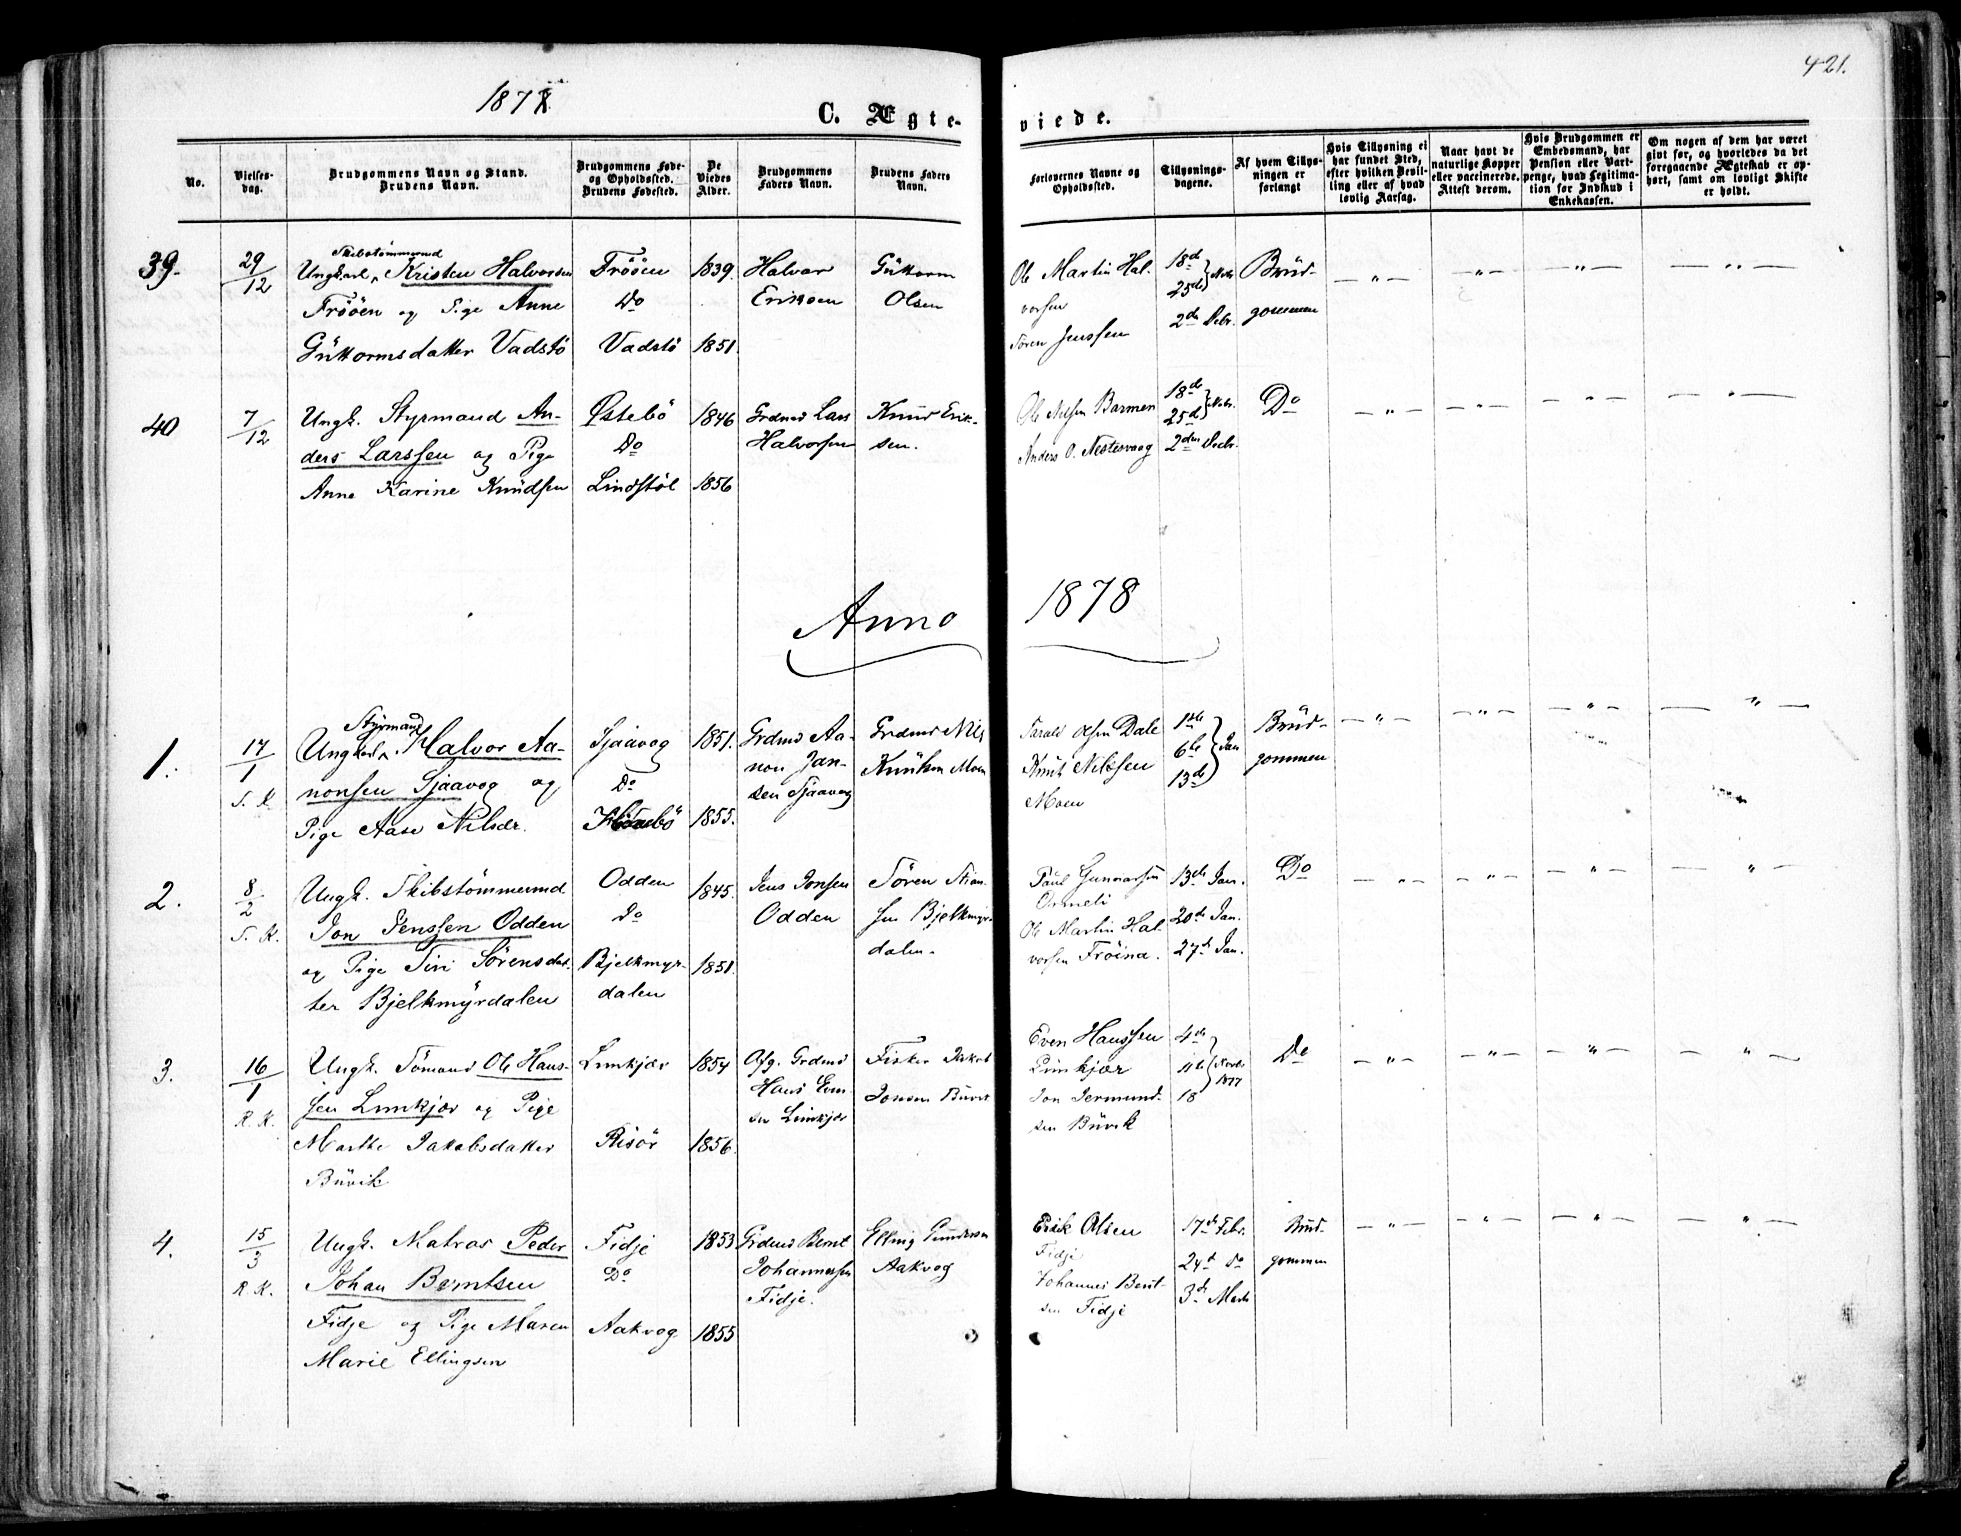 421.
1878.
C. Ægte-
viede.
No.
Vielses-
dag.
Brudgommens Navn og Stand.
Brudens Navn.
Brudgommens Føde-
og Opholdssted.
Brudens Fødested.
De
Viedes
Alder.
Brudgommens
Faders Navn.
Brudens Faders
Navn.
Forlovernes Navne og
Opholdssted.
Tillysnings-
dagene.
Af hvem Tillys-
ningen er
forlangt
Hvis Tillysning ei
har fundet Sted,
efter hvilken Bevil-
ling eller af hvad
lovlig Aarsag.
Naar havt de
naturlige Kopper
eller vaccinerede.
Attest derom.
Hvis Brudgommen er
Embedsmand, har
Pension eller Vart-
penge, hvad Legitima-
tion for Indskud i
Enkekassen.
Om nogen af dem har været
gift før, og hvorledes da det
foregaaende Ægteskab er op-
hørt, samt om lovligt Skifte
er holdt.
39.
29/12
Skibstømmermd
Ungkarl Kristen Halvorsen
Frööen og Pige Anne
Guttormsdatter Vadstö
Frööen
Do
Vadstö
1839.
1851.
Halvor
Eriksen
Guttorm
Olsen
Ole Martin Hal-
vorsen
Sören Jenssen
18de
25de Novbr.
2den Decbr.
Brud-
gommen
— " —
— " —
— " —
— " —
40
7/12
Ungk. Styrmand An-
ders Larssen og Pige
Anne Karine Knudsen
Østebö
Do
Lindstöl
1846
1856
Grdmd Lars
Halvorsen
Knud Erik-
sen.
Ole Nilsen Barmen
Anders O. Nestesvaag
18de
25de Novbr.
2den Decbr.
Do
— " —
— " —
— " —
— " —
Anno 1878
1.
17/1
S. K.
Styrmand
Ungkarl Halvor Aa-
nonsen Sjaavog og
Pige Aase Nilsdr.
Sjaavog
Do
1851.
1855.
Grdmd Aa-
non Jan-
sen Sjaavog
Grdmd Nils
Knutsen Moen
Tarald Olsen Dale
Knut Nilssen
Moen
1ste
6te Jan
13de
Brud-
gommen
— " —
— " —
— " —
— " —
2.
8/2
S. K.
Ungk. Skibstömmermd
Jon Jenssen Odden
og Pige Siri Sörensdat-
ter Bjelkmyrdalen
Odden
Do
Bjelkmyr-
dalen
1845.
1851.
Jens Jonsen
Odden
Sören Stian-
sen Bjelkmyr-
dalen.
Paul Gunnarsen
Ole Martin Hal-
vorsen Fröina.
13de Jan.
20de Jan.
27de Jan.
Do
— " —
— " —
— " —
— " —
3.
16/1
R. K.
Ungk. Sömand Ole Hans-
sen Limkjær og Pige
Marthe Jakobsdatter
Buvik
Limkjær
Risör
1854
1856.
Afg. Grdmd
Hans Even-
sen Limkjær
Fisker Jakob
Jonsen Buvik
Even Hanssen
Limkjær
Jon Jermund-
sen Buvik
4de
11te Novbr
1877
18
Do
— " —
— " —
— " —
— " —
4.
15/3
R. K.
Ungk. Matros Peder
Johan Berntsen
Fidje og Pige Maren
Marie Ellingsen
Fidje
Do
Aakvog
1853
1855
Grdmd Bernt
Johannessen
Fidje.
Elling Gundersen
Aakvog
Erik Olsen
Fidje
Johannes Bent-
sen Fidje
17de Febr.
24de Do
3de Marts
Brud-
gommen
— " —
— " —
— " —
— " —